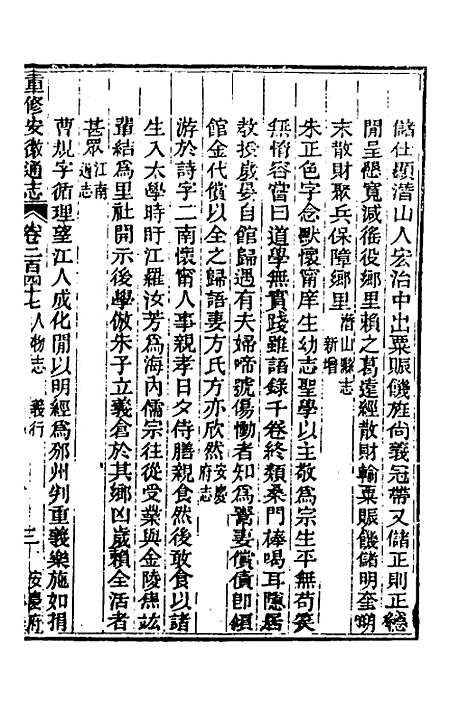 儲仕顯潛山人宏治中出粟賑饑旌尙義冠帶又儲正則正德
閒呈歴寛減徭役鄉里賴之葛達經散財輸粟賑饑儲明奎明
末散財聚兵保障鄉里潛山縣志新增
朱正色字念獻懷甯庠生幼志聖學以主敬爲宗生平無苟笑
無惰容嘗曰道學無實踐雖語録千卷終類桑門棒喝耳隱居
教授歲暮自館歸遇有夫婦啼號傷慟者知爲鬻妻償債即傾
館金代償以全之歸語妻方氏方亦欣然安慶府志
游於詩字二南懷甯人事親孝日夕侍膳親食然後敢食以諸
生入太學時盱江羅汝芳爲海內儒宗往從受業與金陵焦竑
輩結爲里社開示後學倣朱子立義倉於其鄉凶歲賴全活者
甚眾江南通志
曹規字循理望江人成化閒以明經爲邢州判重義樂施如捐
重修安徽通志 卷二百四十七 人物志 義行 三 安慶府